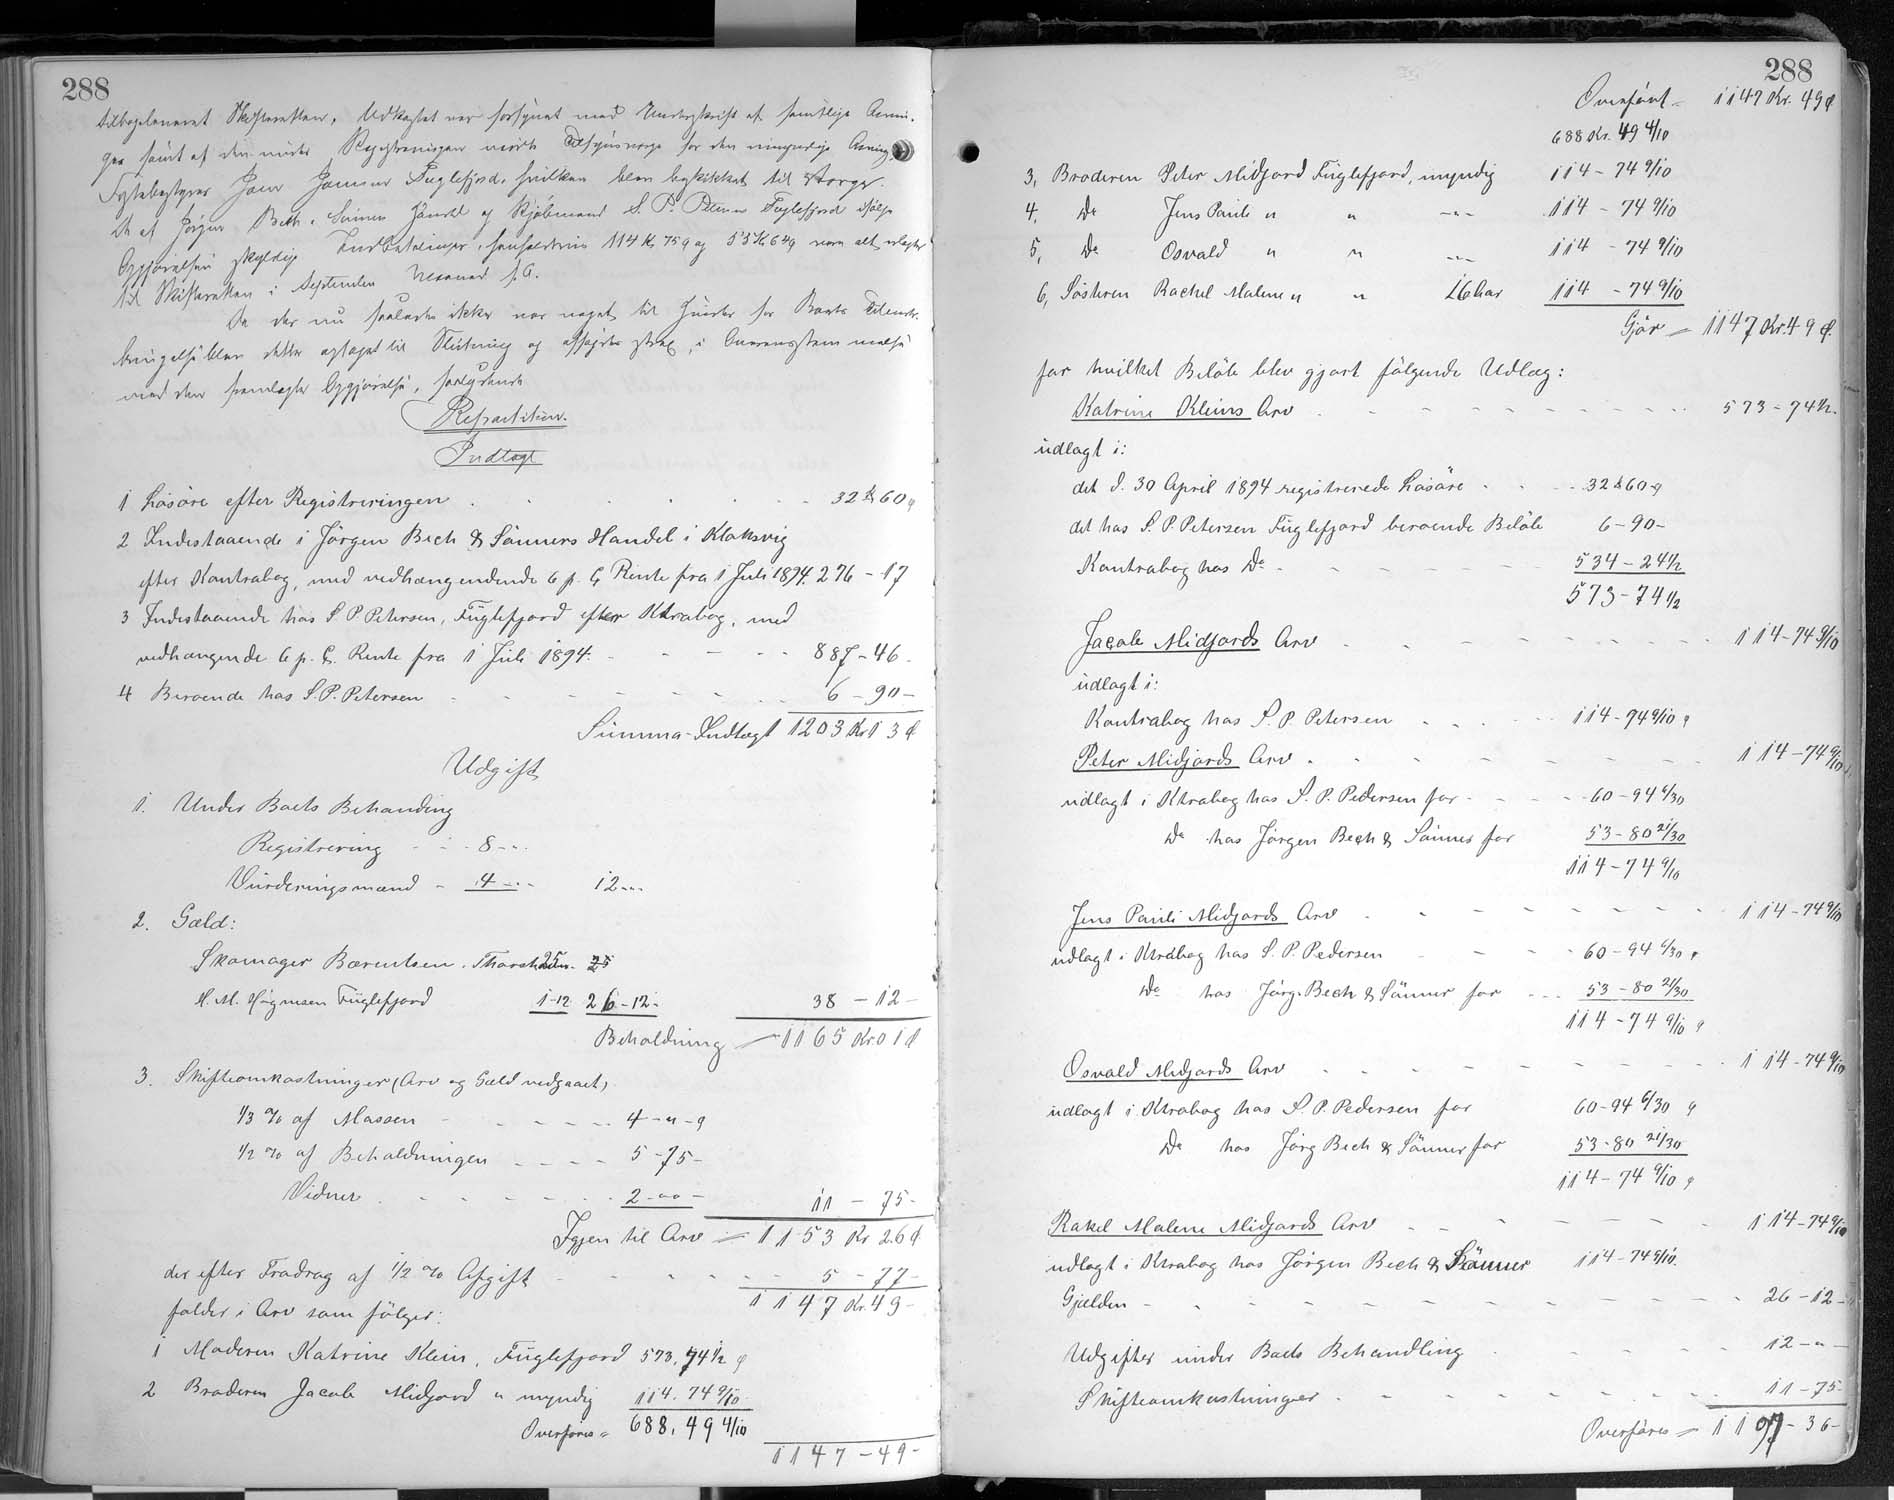 288
tilbageleveret Skifteretten. Udkastet var forsynet med Underskrift af samtlige Arvin-
ger samt af den under Registreringen mødte Tilsynsværge for den umyndige Arving,
Jens Jensen Fuglefjord, hvilken blev beskikket til Værge.
De af Jørgen Bech & Sønners Handel og Kjøbmand S. P. Petersen Fuglefjord ifølge
Opgjørelsen skyldige Indbetalinger, henholdsvis 114 Kr 75 Ø og 53 Kr 64 Ø vare alt erlagte
til Skifteretten i September Maaned f. A.
Da der nu saaledes ikke var noget til Hinder for Boets Tilende-
bringelse blev dette optaget til Slutning og afsagdes strax, i Overensstemmelse
med den fremlagte Opgjørelse, saalydende
Repartition.
Indtægt
1 Løsøre efter Registreringen 32 Kr 60 Ø
2 Indestaaende i Jörgen Bech & Sönners Handel i Klaksvig
efter Kontrabog, med vedhængendende 6 p. C. Rente fra 1 Juli 1894. 276 - 17
3 Indestaaende hos S P Petersen, Fuglefjord efter Ktrabog, med
vedhængende 6 p. C. Rente fra 1 Juli 1894. 887 - 46 -
4 Beroende hos S. P. Petersen 6 - 90 -
Summa-Indtægt 1203 Kr 13 Ø
Udgift
1. Under Boets Behanding
Registrering 8 - "
Vurderingsmænd - 4 - " - 12 - "
2. Gæld:
Skomager Bærentsen. Thorshavn. 25 25
H. M. Högnesen Fuglefjord 1-12 26-12- 38 - 12 -
Beholdning = 1165 Kr 01 Ø
3. Skifteomkostninger (Arv og Gæld vedgaaet)
1/3 % af Massen 4 - " - Ø
1/2 % af Beholdningen 5 - 75 -
Vidner 2 - "" - 11 - 75 -
Igjen til Arv = 1153 Kr 26 Ø
der efter Fradrag af 1/2 % Afgift 5 - 77 -
1147 Kr. 49 -
falder i Arv som følger:
1 Moderen Katrine Klein, Fuglefjord 573, 74 1/2 Ø
2 Broderen Jacob Midjord " myndig 114. 74 9/10
Overføres = 688, 49 4/10
1147 - 49 -
288
Overført = 1147 Kr. 49 Ø
688 Kr. 49 4/10
3, Broderen Peter Midjord Fuglefjord, myndig 114 - 74 9/10
4, Do Jens Pauli " " - " - 114 - 74 9/10
5, Do Osvald " " - " - 114 - 74 9/10
6, Søsteren Rachel Malene " " 16 Aar 114 - 74 9/10
Gjør = 1147 Kr. 49 Ø.
for hvilket Beløb blev gjort følgende Udlæg:
Katrine Kleins Arv 573 - 74 1/2 -
udlagt i:
det d. 30 April 1894 registrerede Løsøre 32 Kr 60 Ø
det hos S. P. Petersen Fuglefjord beroende Beløb 6 - 90 -
Kontrabog hos Do 534 - 24 1/2
573 - 74 1/2
Jacob Midjords Arv 114 - 74 9/10
udlagt i:
Kontrabog hos S. P. Petersen 114 - 74 9/10 Ø
Peter Midjords Arv 114 - 74 9/10
udlagt i Ktrabog hos S. P. Pedersen for 60 - 94 6/30
Do hos Jørgen Bech & Sønner for 53 - 80 21/30
114 - 74 9/10
Jens Pauli Midjords Arv 114 - 74 9/10
udlagt i Ktrabog hos S. P. Pedersen 60 - 94 6/30 Ø
Do hos Jörg. Bech & Sønner for 53 - 80 21/30
114 - 74 9/10 Ø
Osvald Midjords Arv 114 - 74 9/10
udlagt i Ktrabog hos S. P. Pedersen for 60 - 94 6/30 Ø
Do hos Jørg Bech & Sønner for 53 - 80 21/30
114 - 74 9/10 Ø
Rakel Malene Midjords Arv 114 - 74 9/10
udlagt i Ktrabog hos Jørgen Bech & Sønner 114 - 74 9/10.
Gjælden 26 - 12 -
Udgifter under Boets Behandling 12 - " -
Skifteomkostninger 11 - 75 -
Overføres = 1197 - 36 -